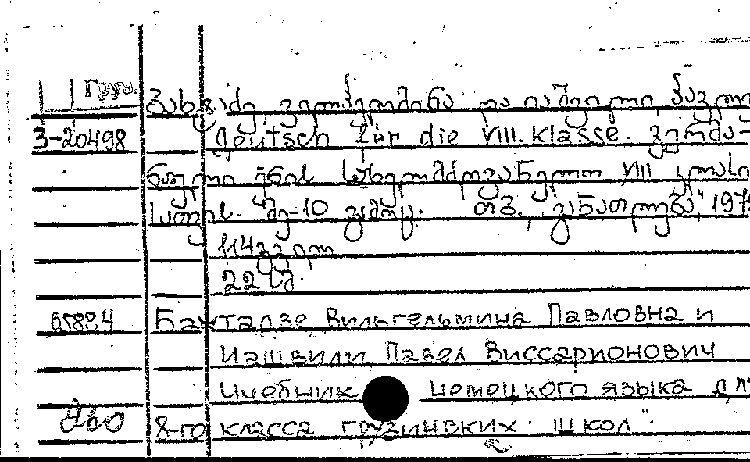 Груз.
ბახტაძე ვილჰელმინა და იაშვილი პავლ
3-20498 Deutsch für die VIII. Klasse. გერმა
ნული ენის სახელმძღვანელო VIII კლასი
სათვის. მე-10 გამოც. თბ. „განათლება" 197
114გვერდი
22 კპ.
65884 Бахтадзе Вильгельмина Павловна и
Иашвили Павел Виссарионович
Учебник немецкого языка для
8-го класса грузинских школ"